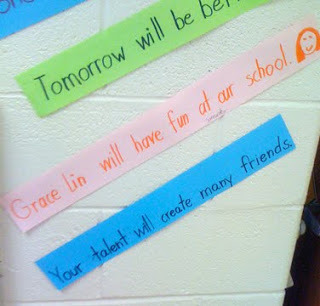 Tomorrow will be
Grace Lin will have fun at our school.
Your talent will create many friends.